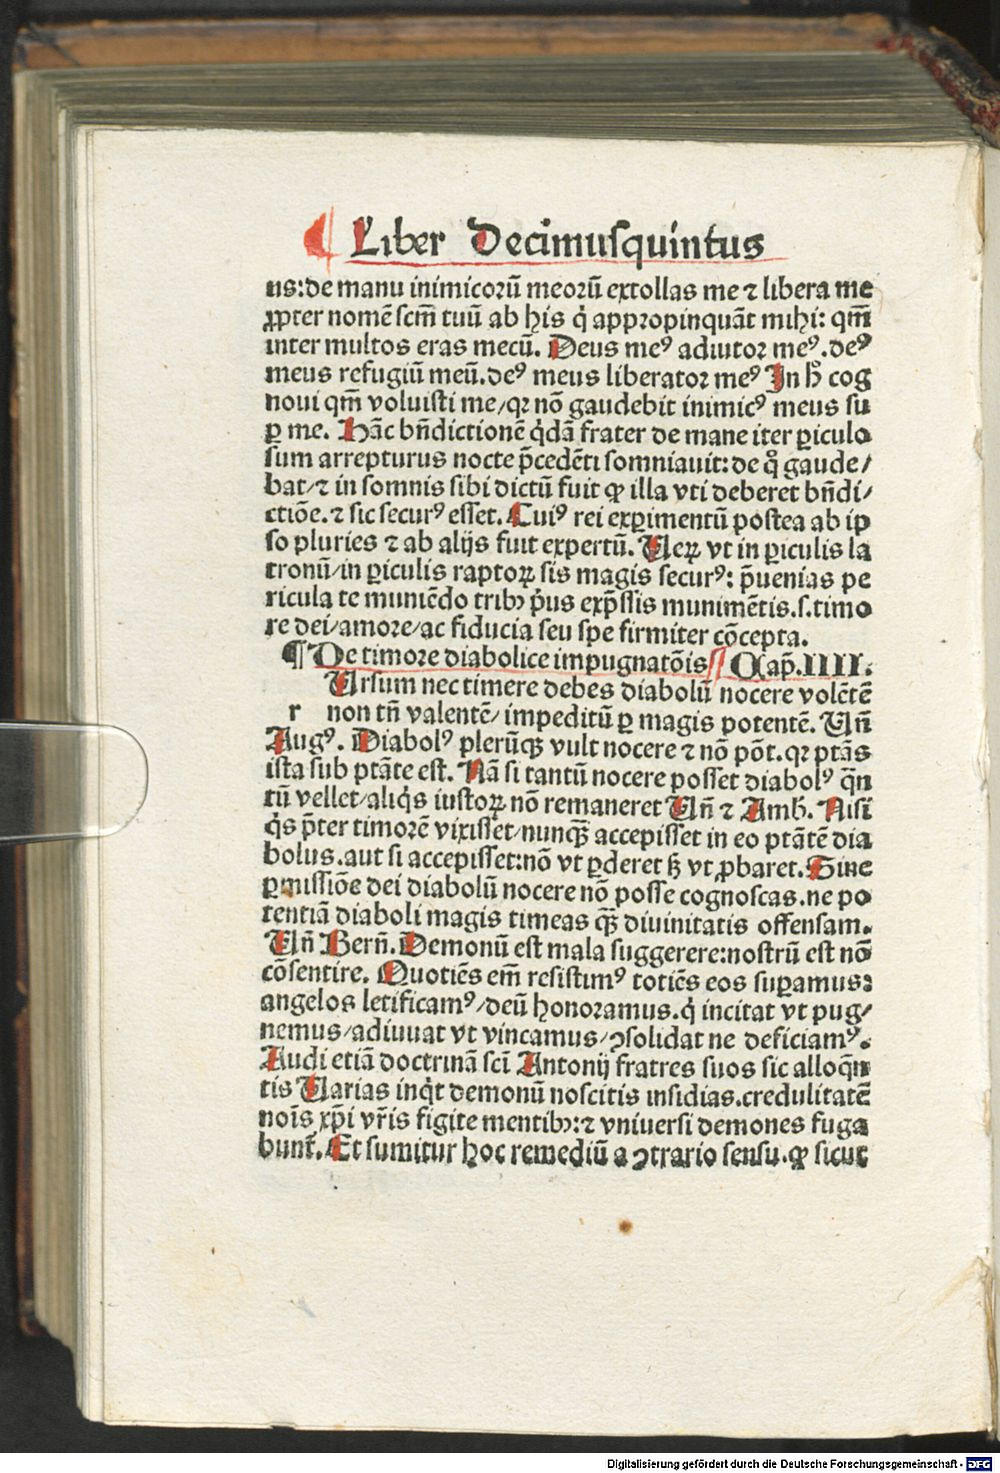 ¶ Liber Decimusquintus
us:de manu inimicoꝝ̄ meoꝝ̄ extollas me ⁊ libera me
ꝓpter nomē scm̄ tuū ab his q̇ appropinquāt mihi: qm̄
inter multos eras mecū. Deus meꝰ adiutor meꝰ.deꝰ
meus refugiū meū.deꝰ meus liberator meꝰ In hͦ cog
noui qm̄ voluisti me/qꝛ nō gaudebit inimicꝰ meus su
ꝑ me. Hāc bn̄dictionē q̇dā frater de mane iter ꝑiculo
sum arrepturus nocte p̄cedēti somniauit:de qͦ gaude/
bat/⁊ in somnis sibi dictū fuit ꝙ illa vti deberet bn̄di/
ctiōe.⁊ sic securꝰ esset. Cuiꝰ rei exꝑimentū postea ab ip
so pluries ⁊ ab alijs fuit expertū. Veꝝ vt in ꝑiculis la
tronū/in ꝑiculis raptoꝝ sis magis securꝰ: p̄uenias pe
ricula te muniēdo tribꝫ p̍us exp̄ssis munimētis.s.timo
re dei/amore/ac fiducia seu spe firmiter cōcepta.
¶ De timore diabolice impugnatōis ¶ Cap̄.IIII.
Ursum nec timere debes diabolū nocere volētē
r non tn̄ valentē/ impeditū ꝑ magis potentē. Un̄
Augꝰ. Diabolꝰ plerūqꝫ vult nocere ⁊ nō pōt.qꝛ ptās
ista sub ptāte est. Nā si tantū nocere posset diabolꝰ q̄n
tū vellet/aliq̇s iustoꝝ nō remaneret Un̄ ⁊ Amb. Nisi
q̇s p̄ter timorē vixisset/nunqꝫ̄ accepisset in eo ptātē dia
bolus.aut si accepisset:nō vt ꝑderet sꝫ vt ꝓbaret. Sine
ꝑmissiōe dei diabolū nocere nō posse cognoscas.ne po
tentiā diaboli magis timeas qꝫ̄ diuinitatis offensam.
Un̄ Bern̄. Demonū est mala suggerere:nostrū est nō
cōsentire. Quotiēs em̄ resistimꝰ totiēs eos suꝑamus:
angelos letificamꝰ/deū honoramus.q̇ incitat vt pug/
nemus/adiuuat vt vincamus/ꝯsolidat ne deficiamꝰ.
Audi etiā doctrinā sci̅ Antonij fratres suos sic alloq̄n
tis Varias inq̇t demonū noscitis insidias.credulitatē
nois̄ xp̄i vr̄is figite mentibꝫ:⁊ vniuersi demones fuga
bunt̄. Et sumitur hoc remediū a ꝯtrario sensu.ꝙ sicut
Digitalisierung gefördert durch die Deutsche Forschungsgemeinschaft - DFG